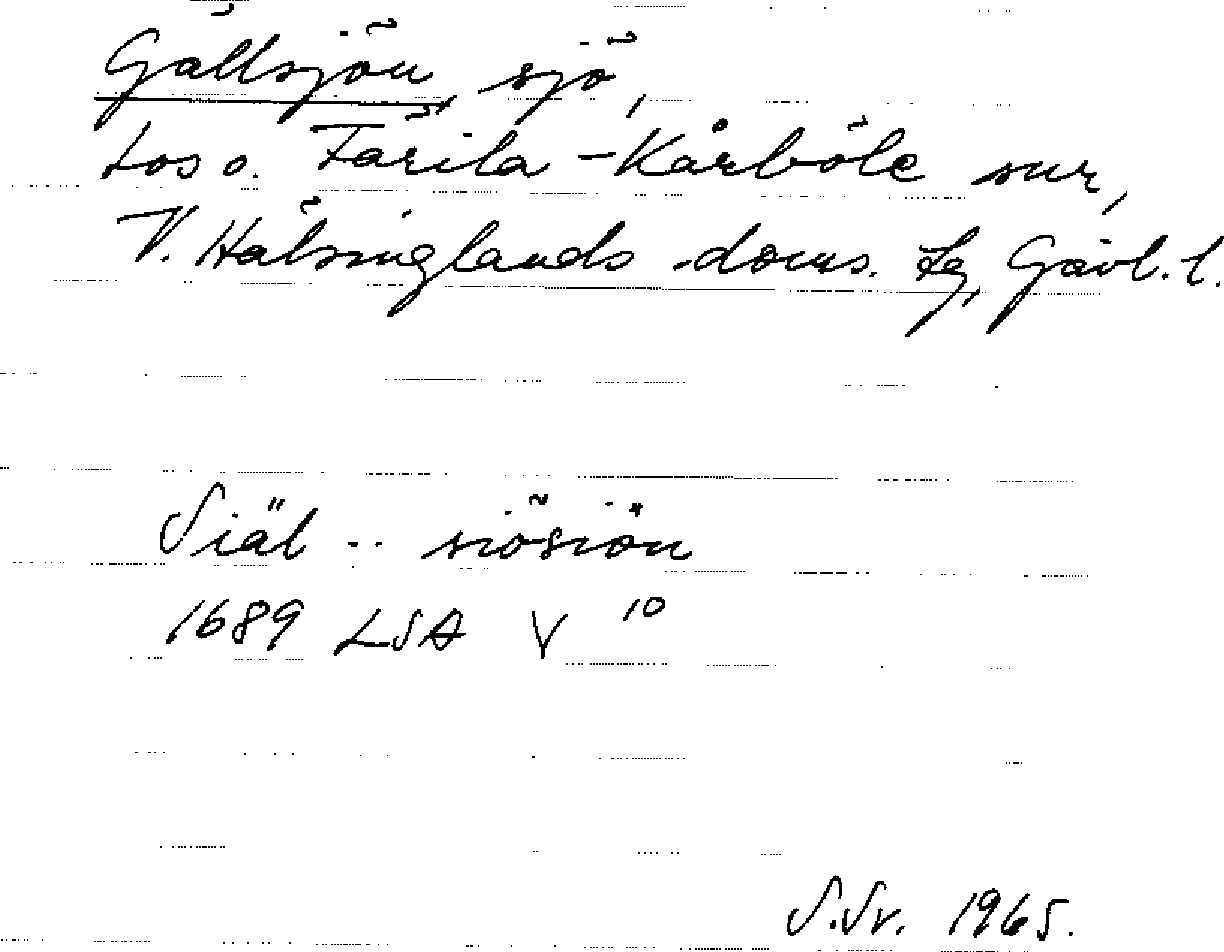 Gällsjön, sjö,
Los o. Färila-Kårböle snr,
V. Hälsinglands doms. tg, Gävl. l.
Siäl -- siösiön
1689 LSA V 10
S.Sv. 1965.